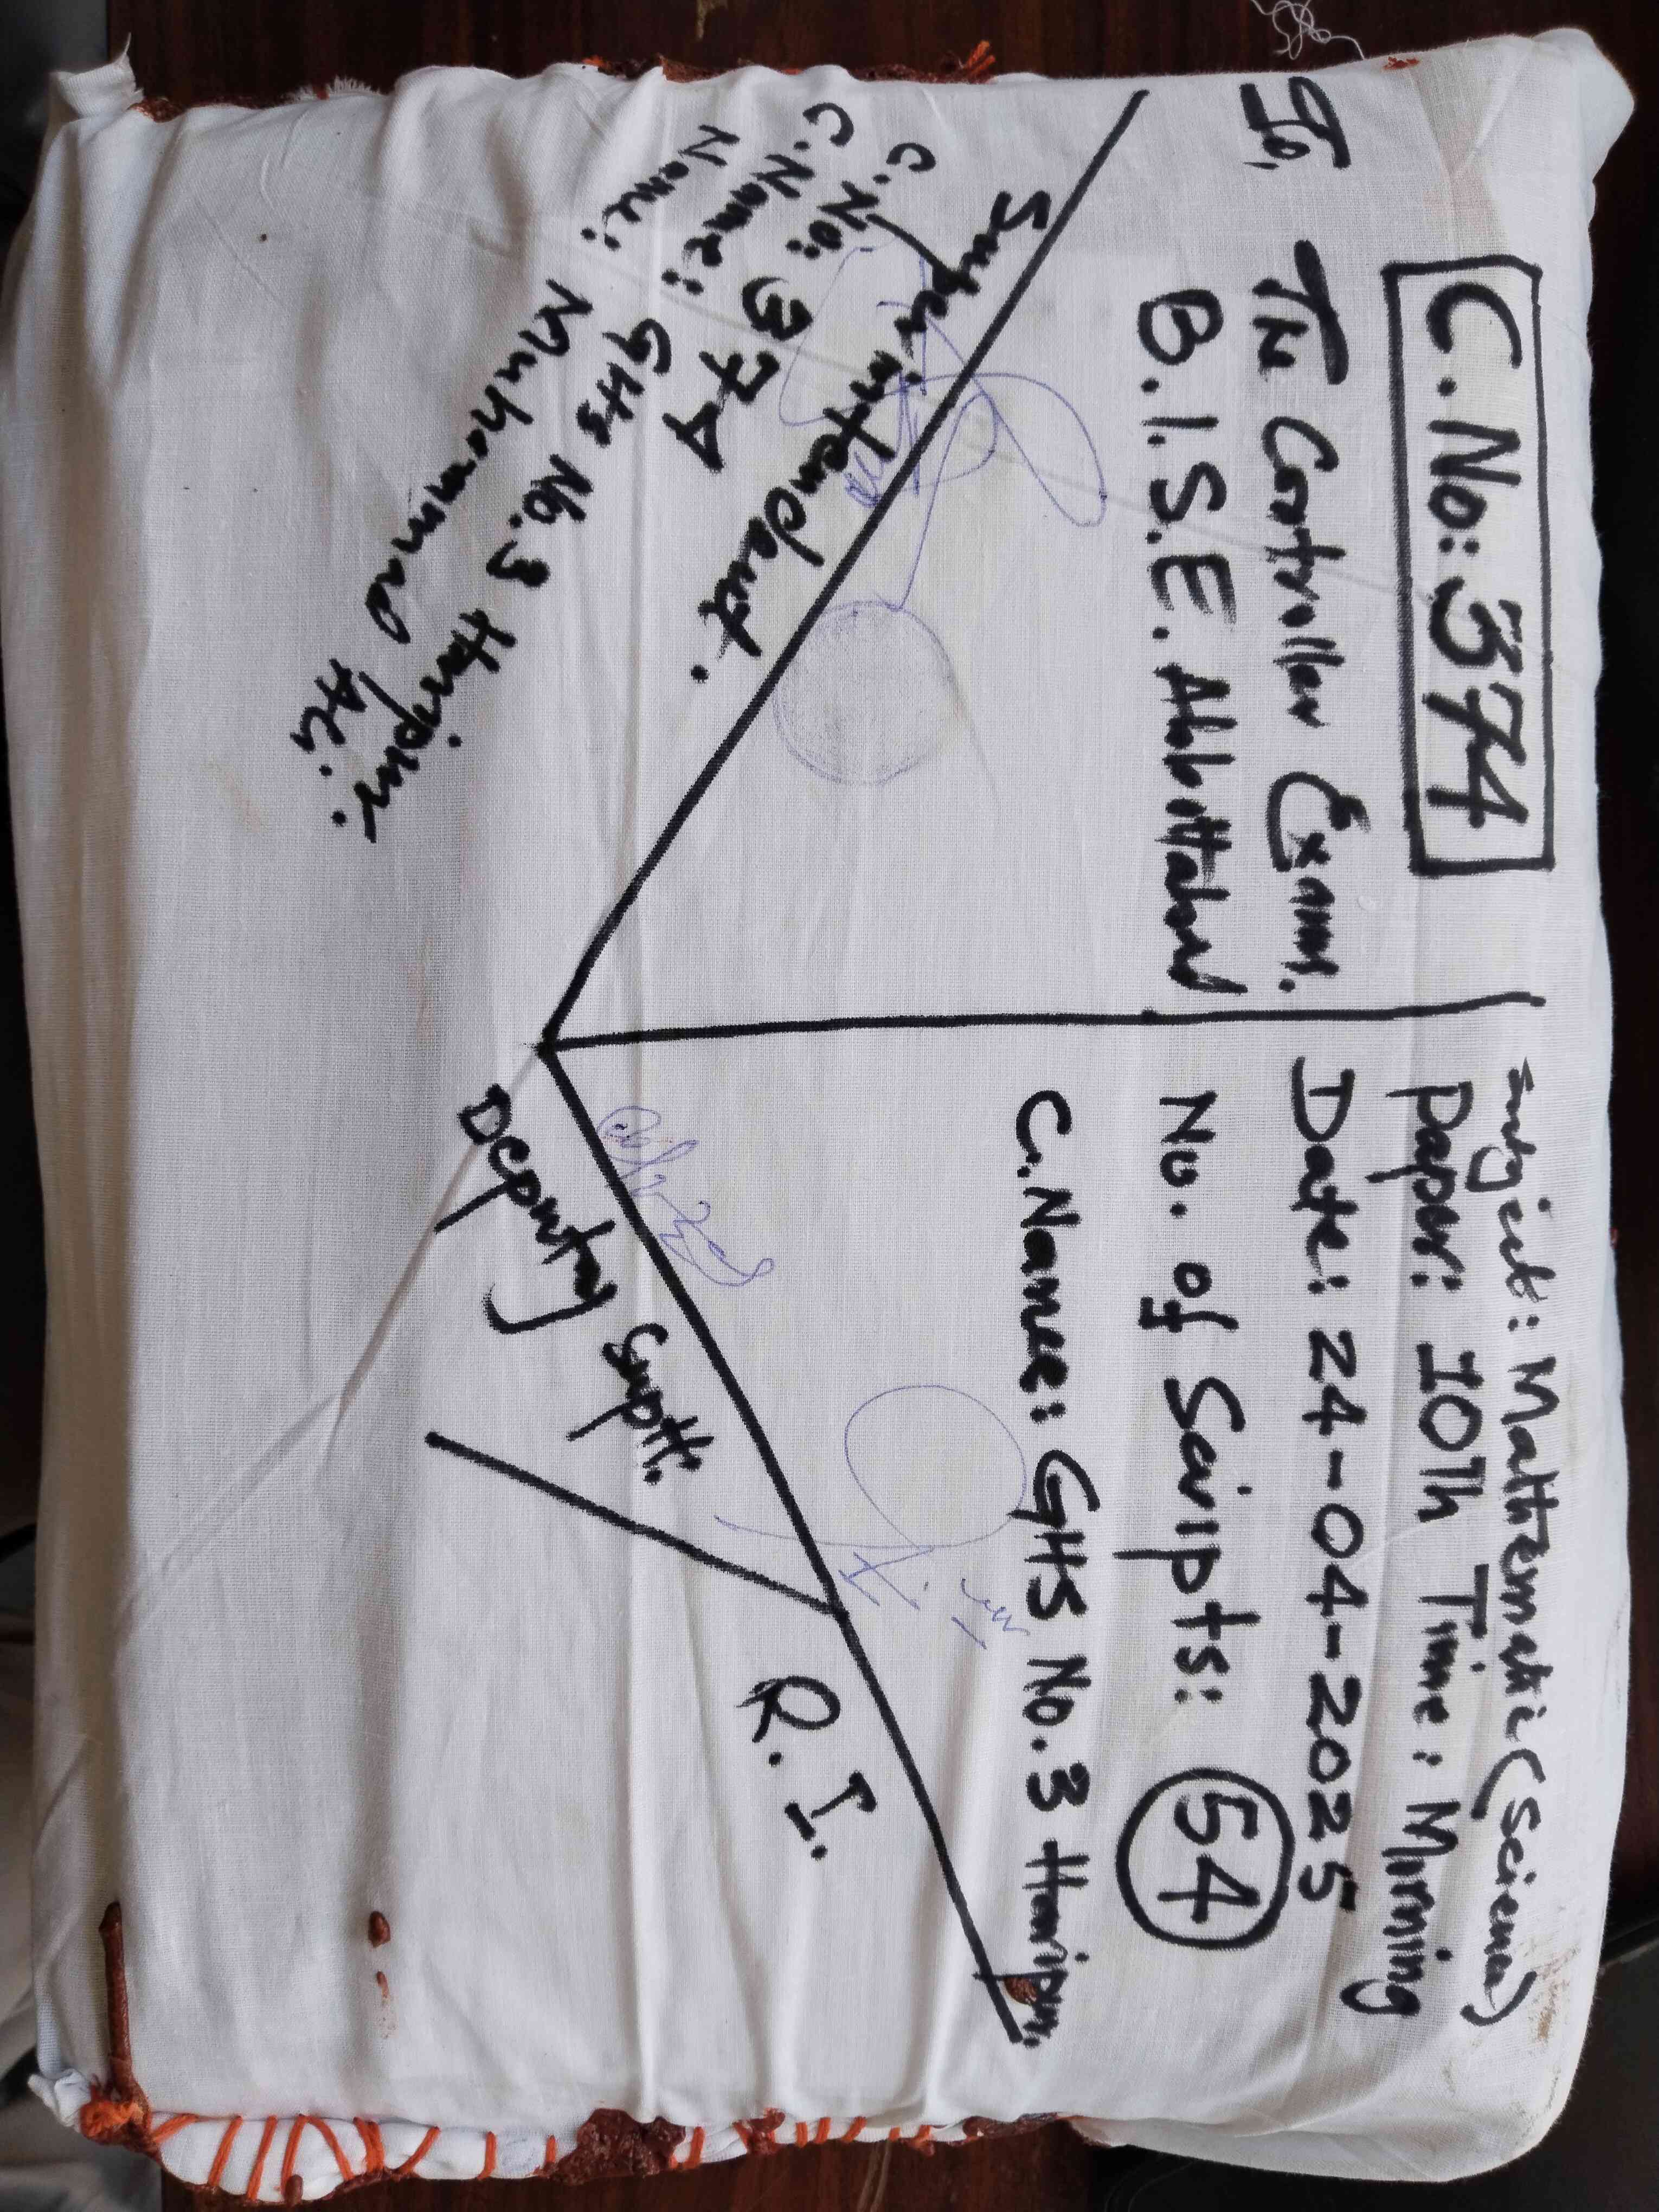 C.No: 374
To,
The Controller Exam.
B.I.S.E. Abbottabad
Subject: Mathematic (Science)
Paper: 10Th Time: Morning
Date: 24-04-2025
No. of Scripts: 54
C.Name: GHS No.3 Haripur.
Superintendent.
C.No: 374
C.Name: GHS No.3 Haripur.
Name: Muhammad
Deputy Suptt.
R.I.